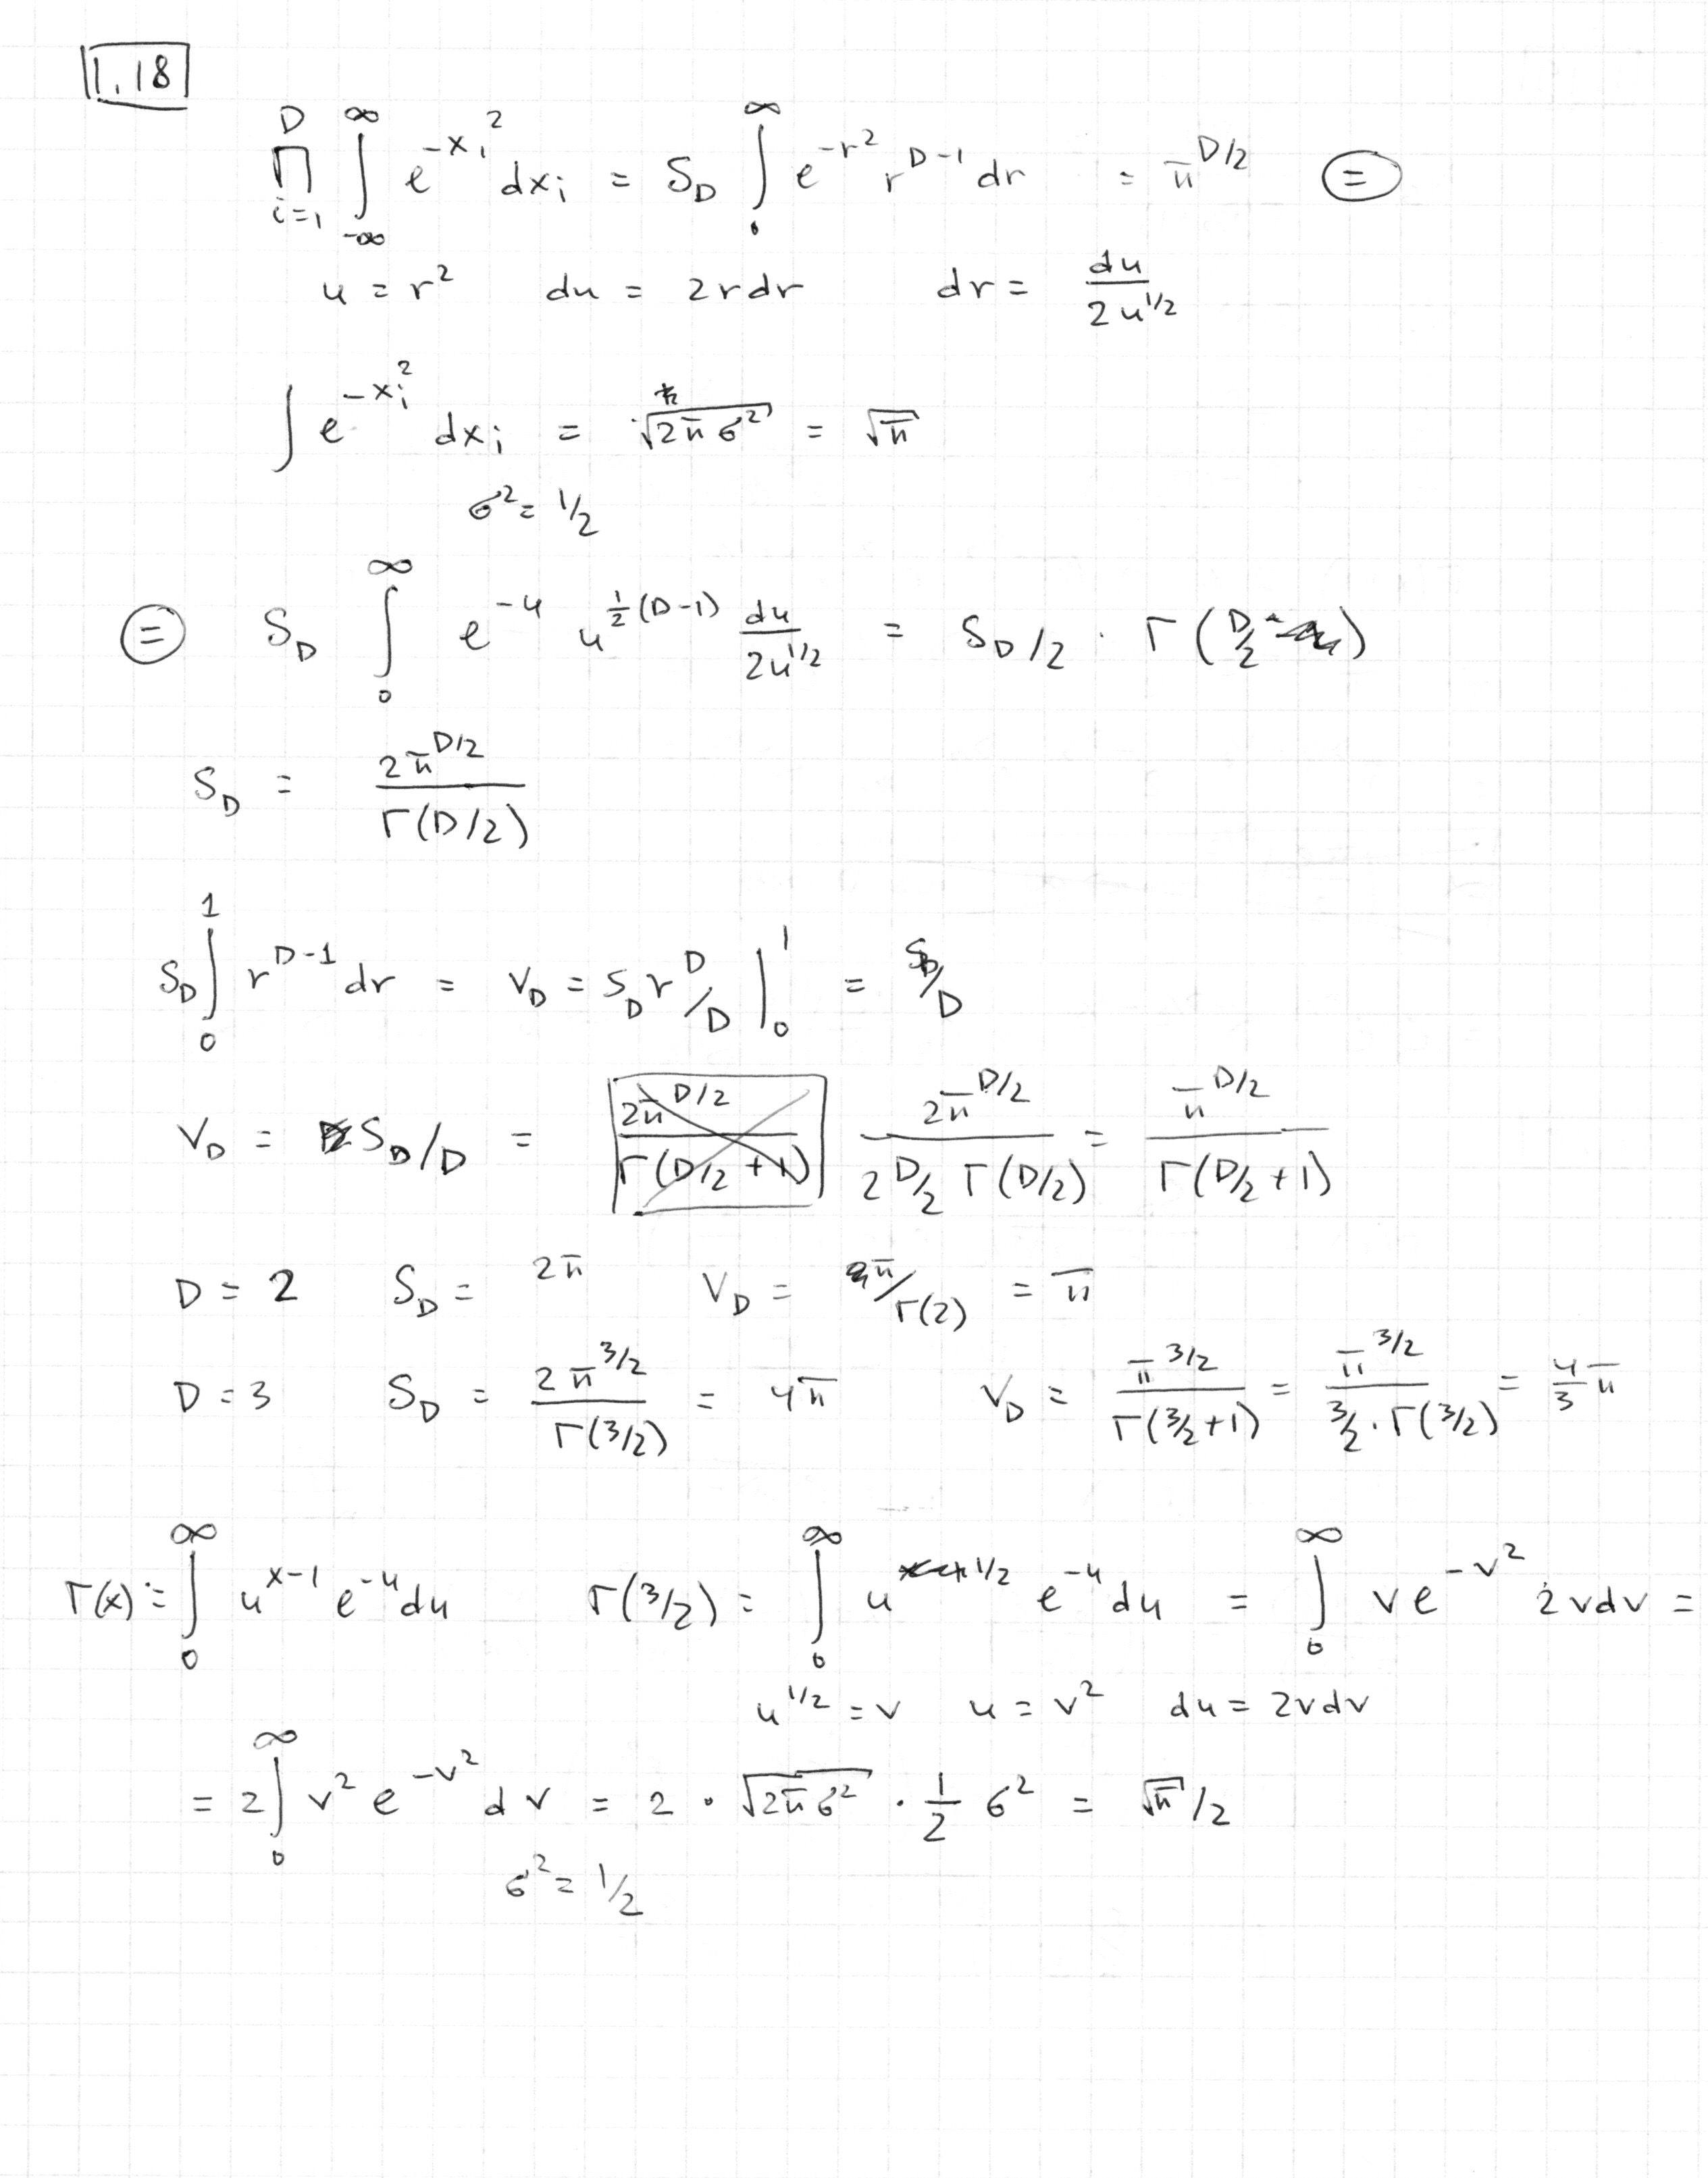 1.18
∏_{i=1}^{D} ∫_{-∞}^{∞} e^{-x_i^2} dx_i = S_D ∫_0^∞ e^{-r^2} r^{D-1} dr = π^{D/2} ⊜
u = r^2 du = 2rdr dr = du/(2u^{1/2})
∫ e^{-x_i^2} dx_i = √(2πσ^2) = √π
σ^2 = 1/2
⊜ S_D ∫_0^∞ e^{-u} u^{1/2(D-1)} du/(2u^{1/2}) = S_D/2 · Γ(D/2)
S_D = 2π^{D/2}/Γ(D/2)
S_D ∫_0^1 r^{D-1} dr = V_D = S_D r^D/D |_0^1 = S_D/D
V_D = S_D/D = 2π^{D/2}/Γ(D/2+1) 2π^{D/2}/(2 D/2 Γ(D/2)) = π^{D/2}/Γ(D/2+1)
D = 2 S_D = 2π V_D = π/Γ(2) = π
D = 3 S_D = 2π^{3/2}/Γ(3/2) = 4π V_D = π^{3/2}/Γ(3/2+1) = π^{3/2}/(3/2 · Γ(3/2)) = 4/3 π
Γ(x) = ∫_0^∞ u^{x-1} e^{-u} du Γ(3/2) = ∫_0^∞ u^{1/2} e^{-u} du = ∫_0^∞ v e^{-v^2} 2vdv =
u^{1/2} = v u = v^2 du = 2vdv
= 2∫_0^∞ v^2 e^{-v^2} dv = 2 · √(2πσ^2) · 1/2 σ^2 = √π/2
σ^2 = 1/2